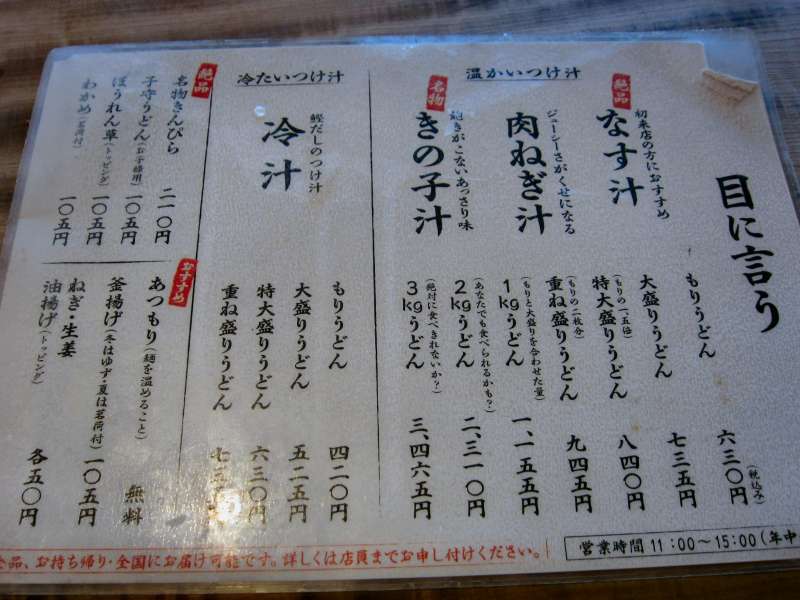 目に言う
温かいつけ汁
初来店の方におすすめ
絶品
なす汁
ジューシーさがくせになる
肉ねぎ汁
飽きがこないあっさり味
名物
きの子汁
もりうどん 六三〇円(税込み)
大盛りうどん 七三五円
特大盛りうどん(もりの一、五倍) 八四〇円
重ね盛りうどん(もりの二枚分) 九四五円
1kgうどん(もりと大盛りを合わせた量) 一、一五五円
2kgうどん(あなたでも食べられるかも?) 二、三一〇円
3kgうどん(絶対に食べきれないか?) 三、四六五円
冷たいつけ汁
鰹だしのつけ汁
冷汁
もりうどん 四二〇円
大盛りうどん 五二五円
特大盛りうどん 六三〇円
重ね盛りうどん 七三五円
絶品
名物きんぴら 二一〇円
子守うどん(お子様用) 一〇五円
ほうれん草(トッピング) 一〇五円
わかめ(茗荷付) 一〇五円
おすすめ
あつもり(麺を温めること) 無料
釜揚げ(冬はゆず・夏は茗荷付) 一〇五円
ねぎ・生姜
油揚げ(トッピング) 各五〇円
全品、お持ち帰り・全国にお届け可能です。詳しくは店員までお申し付けください。
営業時間 11:00〜15:00(年中